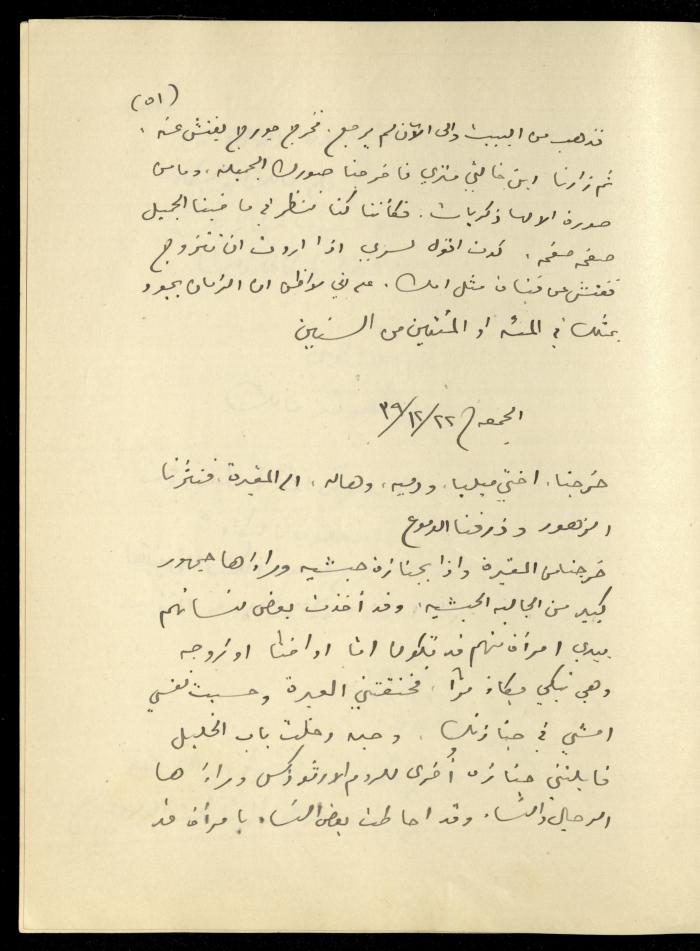 (٥١)
فذهب من البيت والى الآن لم يرجع. فخرج جورج يفتش عنه.
ثم زارنا ابن خالتي متري فاخرجنا صورك الجميلة، وما من
صورة الا لها ذكريات. فكأننا كنا ننظر في ماضينا الجميل
صفحه صفحه. كدت اقول لسري اذا اردت ان تتزوج
ففتش عن فتاة مثل امك. على اني لا اظن ان الزمان يجود
بمثلك في المئه او المئتين من السنين
الجمعه ٢٢/١٢/٣٩
خرجنا، اختي ميليا، ودميه، وهاله، الى المقبرة، فنثرنا
الزهور وذرفنا الدموع
خرجنا من المقبرة واذا بجنازة حبشيه وراءها جمهور
كبير من الجاليه الحبشيه، وقد أخذت بعض نسائهم
بيدي امرأة منهم قد تكون اما او اختا او زوجه
وهي تبكي بكاء مرّاً، فخنقتني العبرة وحسبت نفسي
امشي في جنازتك. وحين دخلت باب الخليل
قابلتني جنازه أُخرى للروم الارثوذكس وراءها
الرجال والنساء، وقد احاطت بعض النساء بامرأة قد